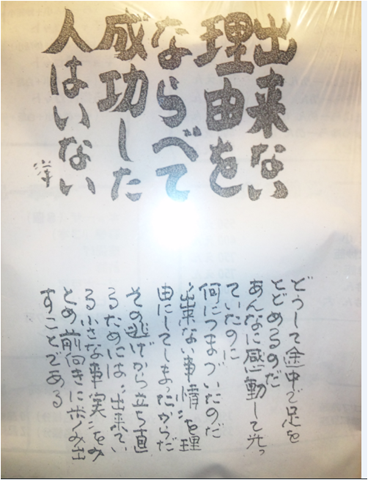 出来ない
理由を
ならべて
成功した
人はいない
どうして途中で足を
とどめるのだ
あんなに感動して光っ
ていたのに
何につまづいたのだ
出来ない事情を理
由にしてしまったからだ
その逃げから立ち直
るためには、出来てい
る小さな事実をみ
とめ前向きに歩み出
すことである